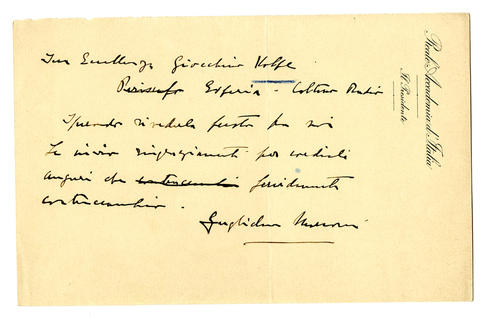 Sua Eccellenza Gioacchino Volpe
Piroscafo Esperia - Coltano Radio
Sperando rivederla presto fra noi
Le invio ringraziamenti per cordiali
auguri che contraccambio fervidamente
contraccambio.
Guglielmo Marconi
Reale Accademia d'Italia
Il Presidente